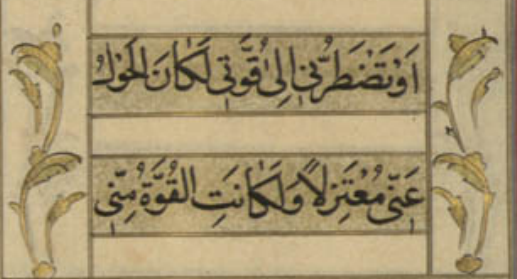 اَوْتَضْطَرُّنِي اِلىٰ قُوَّتِي لَكَانَ الْحَوْلُ
عَنِّي مُعْتَزِلاً وَلَكَانَتِ الْقُوَّةُ مِنِّي